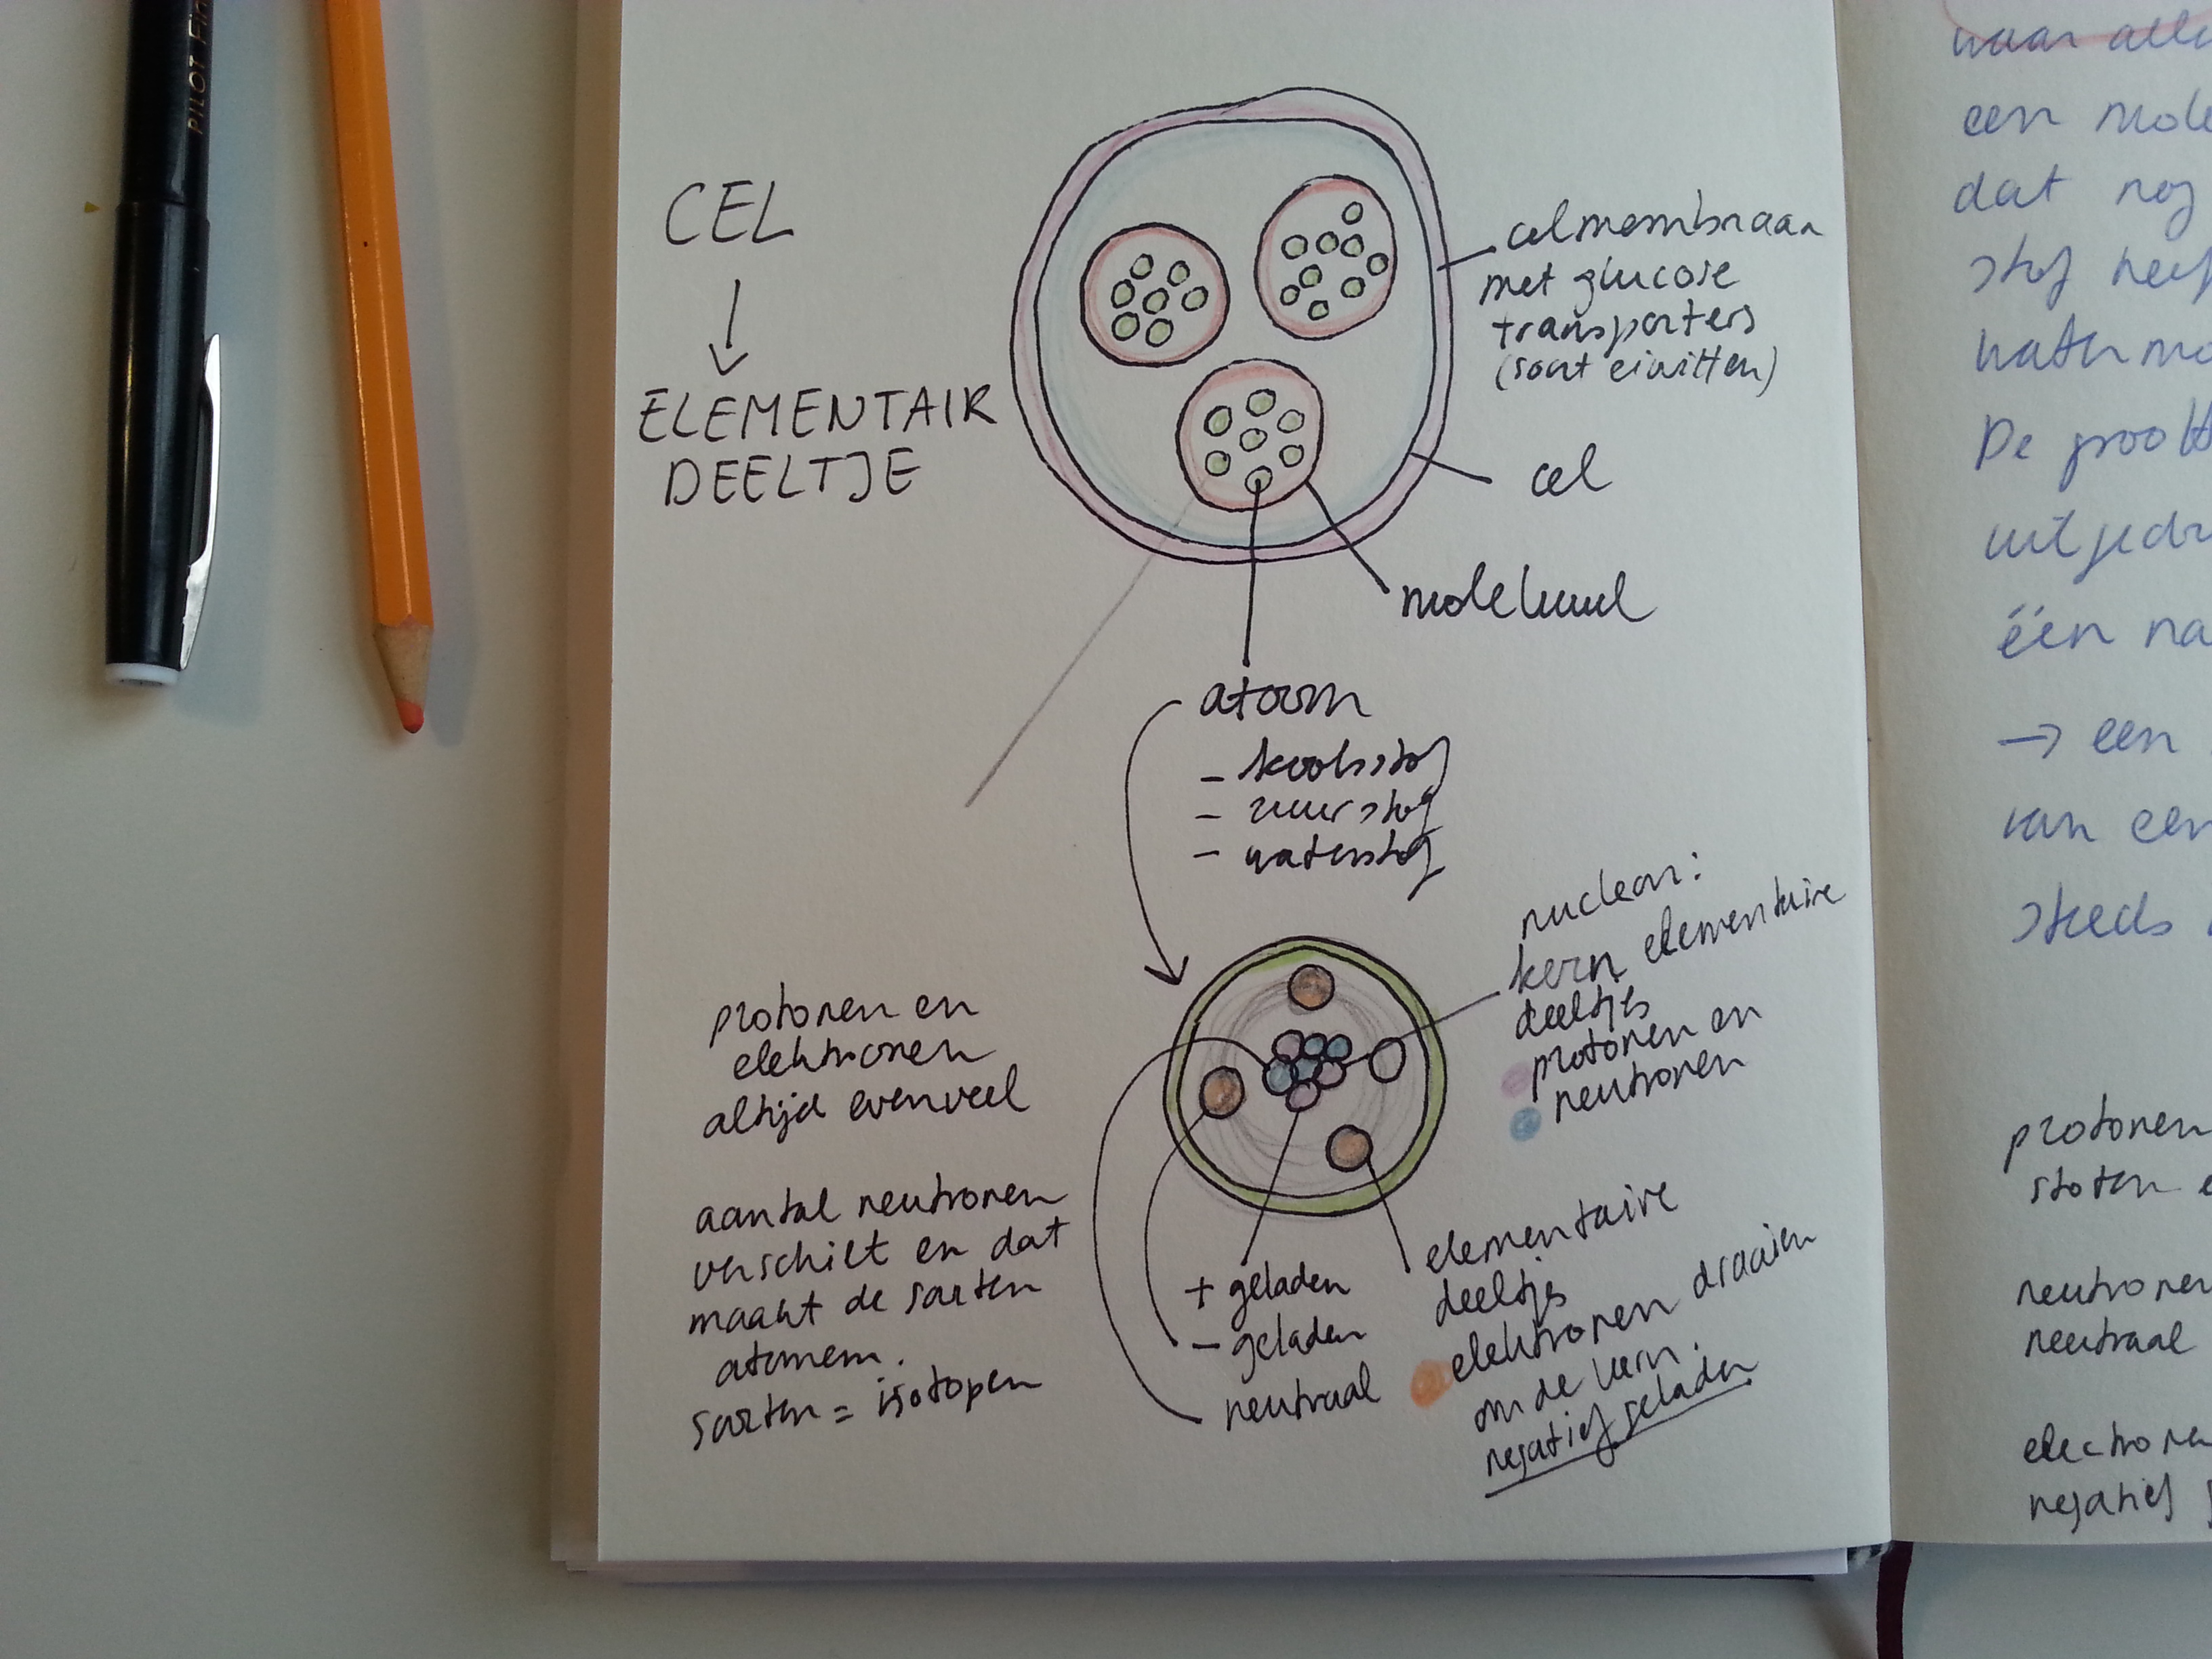 PILOT Fin
CEL
ELEMENTAIR
DEELTJE
celmembraan
met glucose
transporters
(soort eiwitten)
cel
molekuul
atoom
- koolstof
- zuurstof
- waterstof
nucleon:
kern elementaire
deeltjes
protonen en
neutronen
protonen en
elektronen
altijd evenveel
aantal neutronen
verschilt en dat
maakt de soorten
atomem.
soorten = isotopen
+ geladen
- geladen
neutraal
elementaire
deeltjes
elektronen draaien
om de kern.
negatief geladen
naar alle
een mole
dat nog
stof heef
watermo
De groott
uitgedr
één na
→ een
van een
steeds
protonen
stoten e
neutronen
neutraal
electronen
negatief g